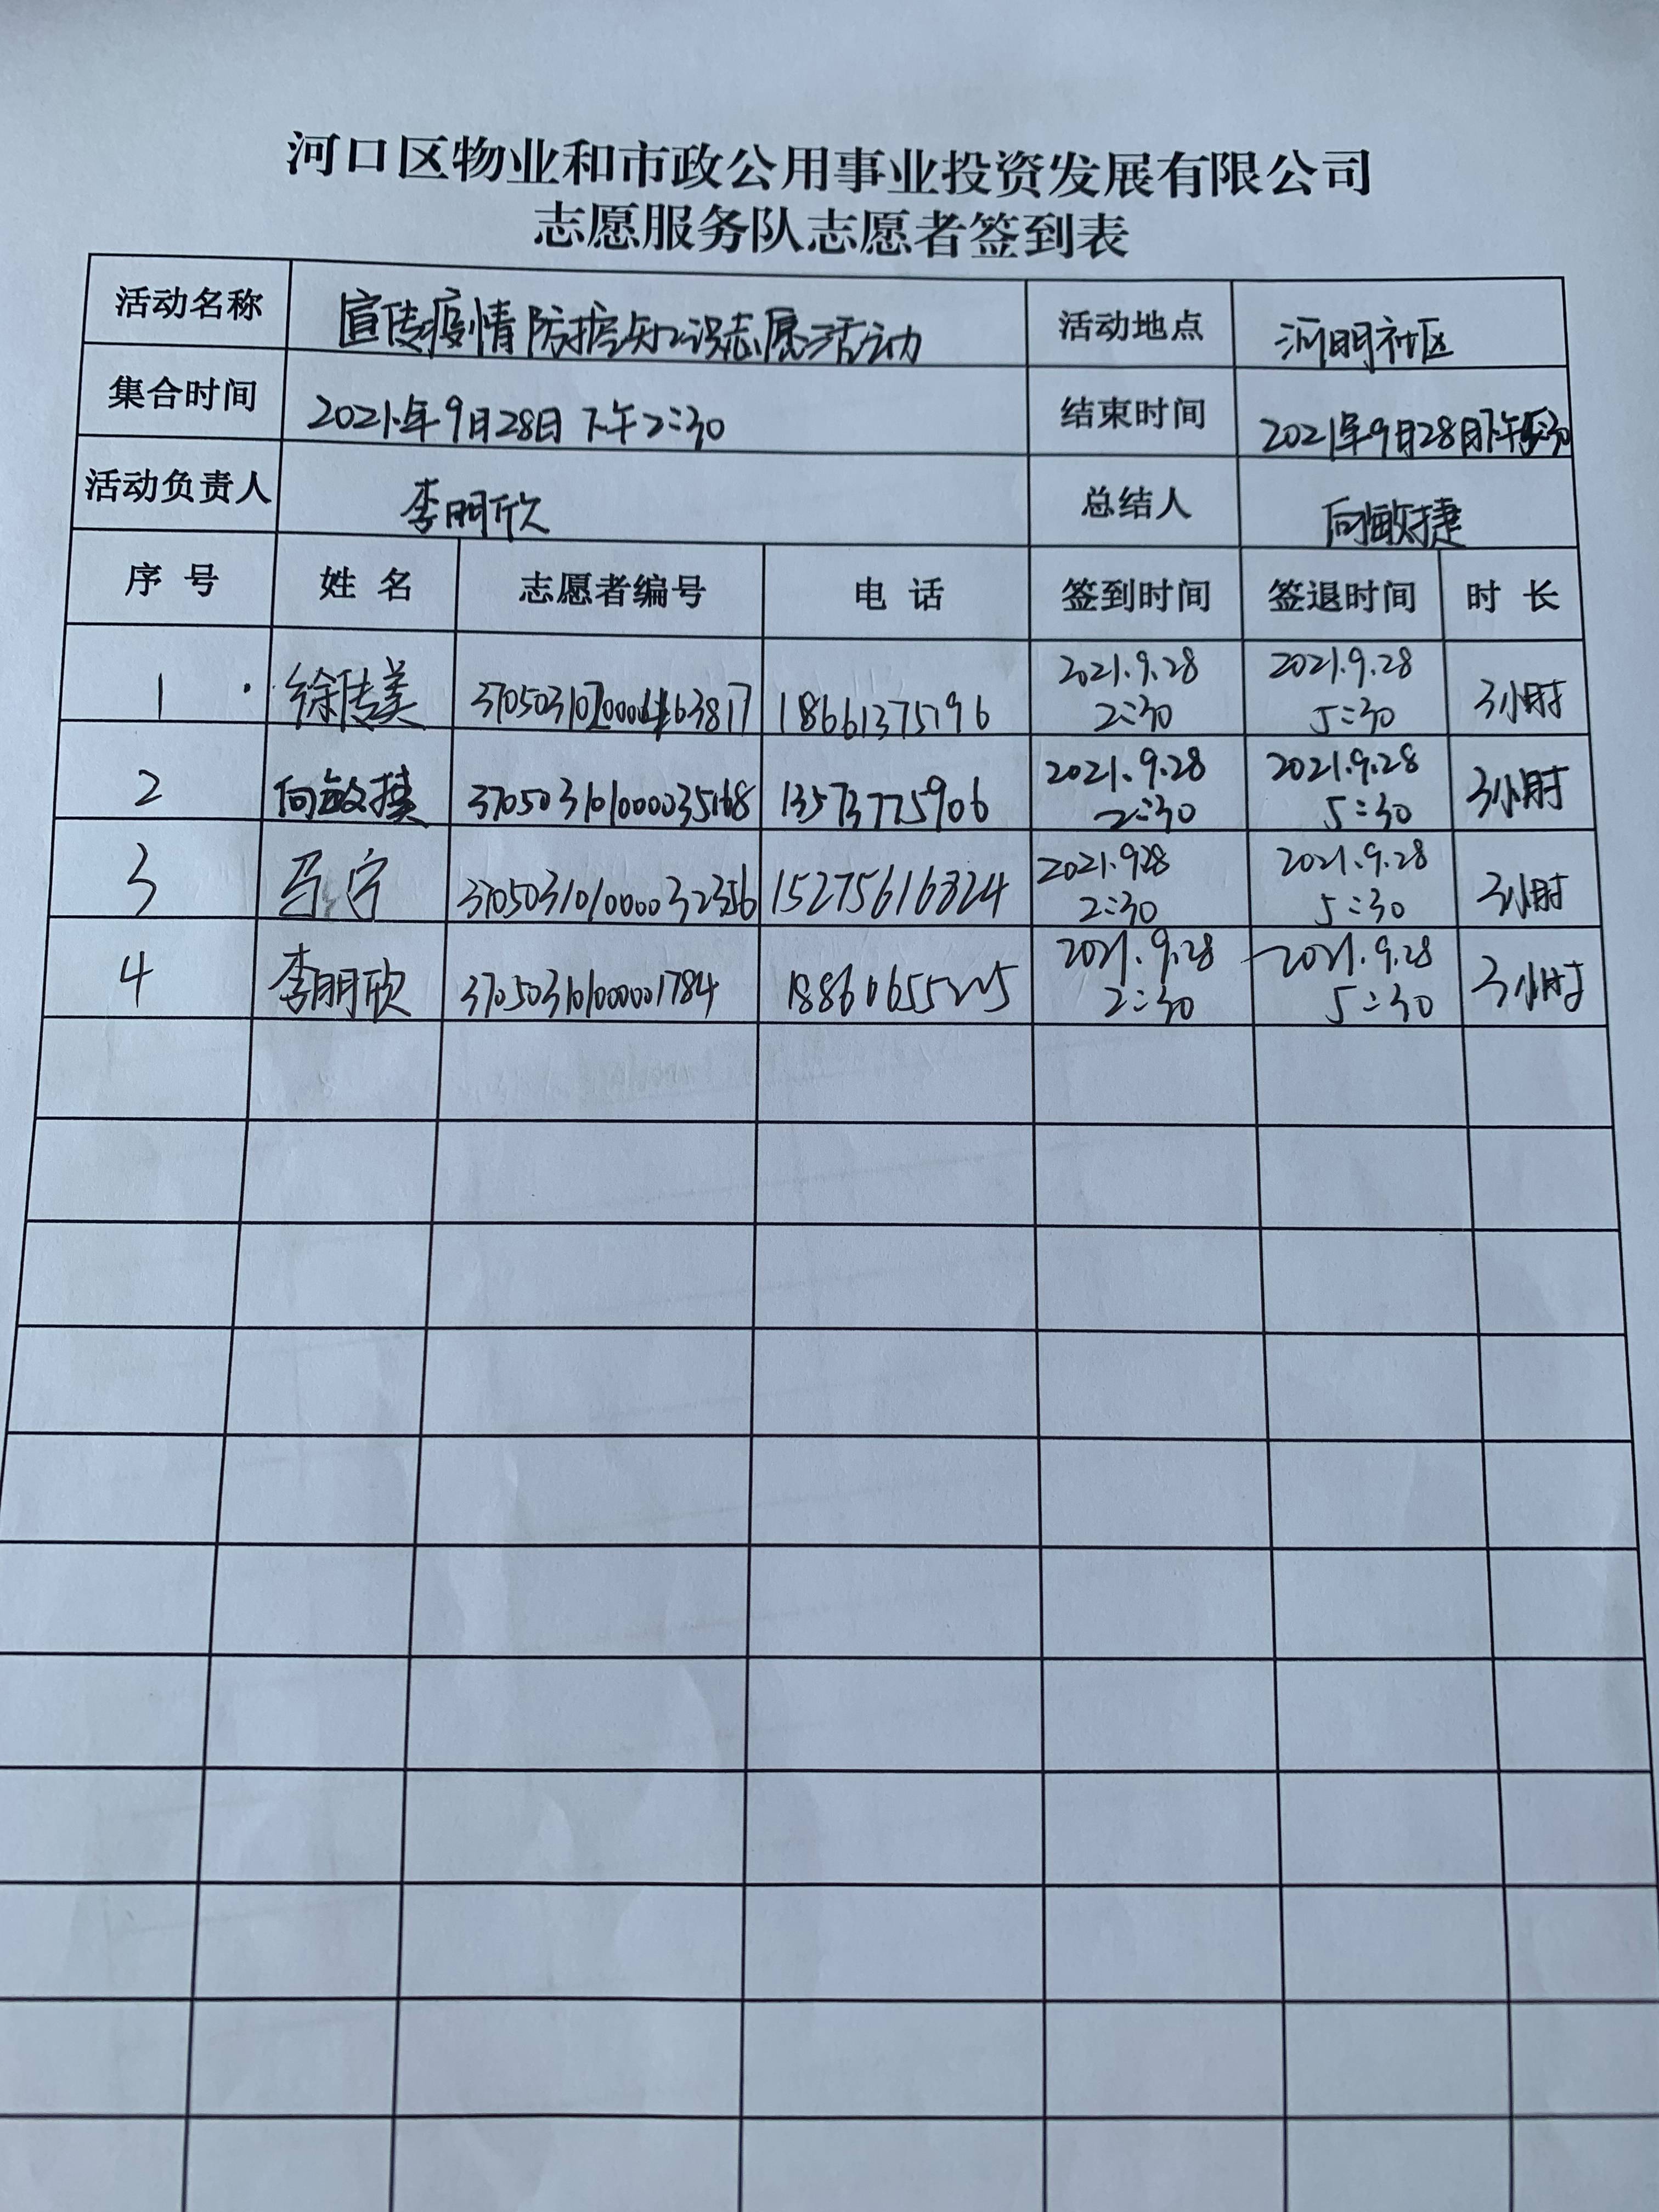 河口区物业和市政公用事业投资发展有限公司
志愿服务队志愿者签到表
活动名称 宣传疫情防控知识志愿活动 活动地点 河明社区
集合时间 2021年9月28日下午2:30 结束时间 2021年9月28日下午5:30
活动负责人 李明欣 总结人 向敏捷
序号 姓名 志愿者编号 电话 签到时间 签退时间 时长
1 徐传美 18661375796 2021.9.28 2:30 2021.9.28 5:30 3小时
2 向敏捷 370503101000035168 13573775906 2021.9.28 2:30 2021.9.28 5:30 3小时
3 马宁 370503101000032356 15275616824 2021.928 2:30 2021.9.28 5:30 3小时
4 李明欣 370503101000001784 18860655225 2021.9.28 2:30 2021.9.28 5:30 3小时